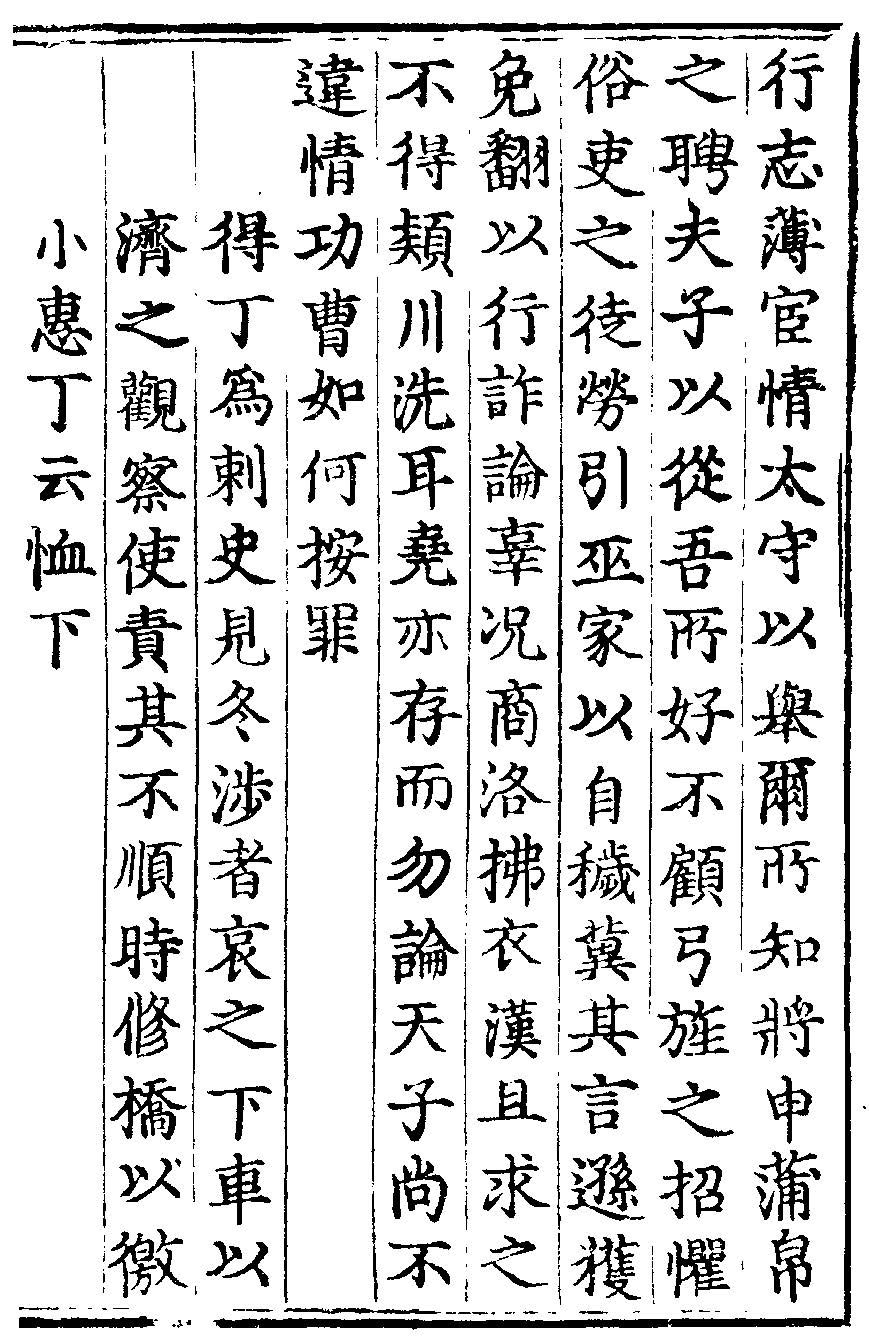 行志薄宦情太守以舉爾所知將申蒲帛
之聘夫子以從吾所好不顧弓旌之招懼
俗吏之徒勞引巫家以自穢冀其言遜獲
免翻以行詐論辜况商洛拂衣漢且求之
不得潁川洗耳堯亦存而勿論天子尚不
違情功曹如何按罪
得丁爲刺史見冬涉者哀之下車以
濟之觀察使責其不順時修橋以徼
小惠丁云恤下